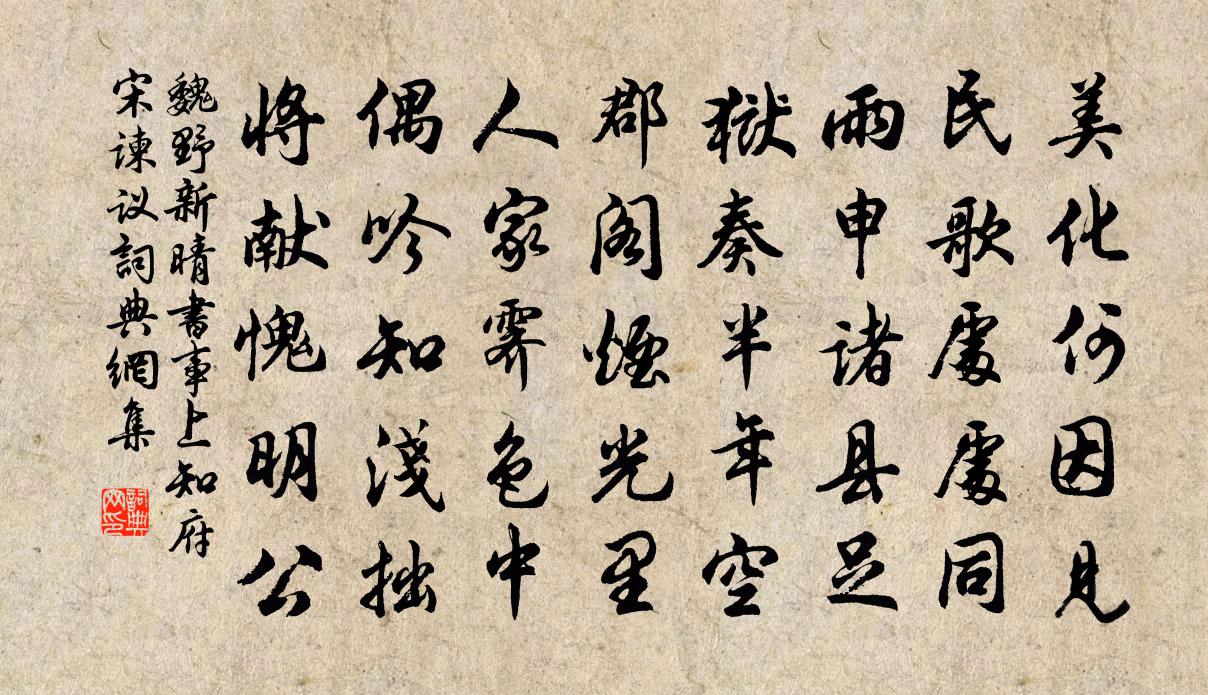 美化何因見
民歌處處同
雨申諸县足
獄奏半年空
郡閣煙光里
人家霽色中
偶吟知淺拙
将献愧明公
魏野新晴書事上知府
宋諫议詞典網集
詞典网印